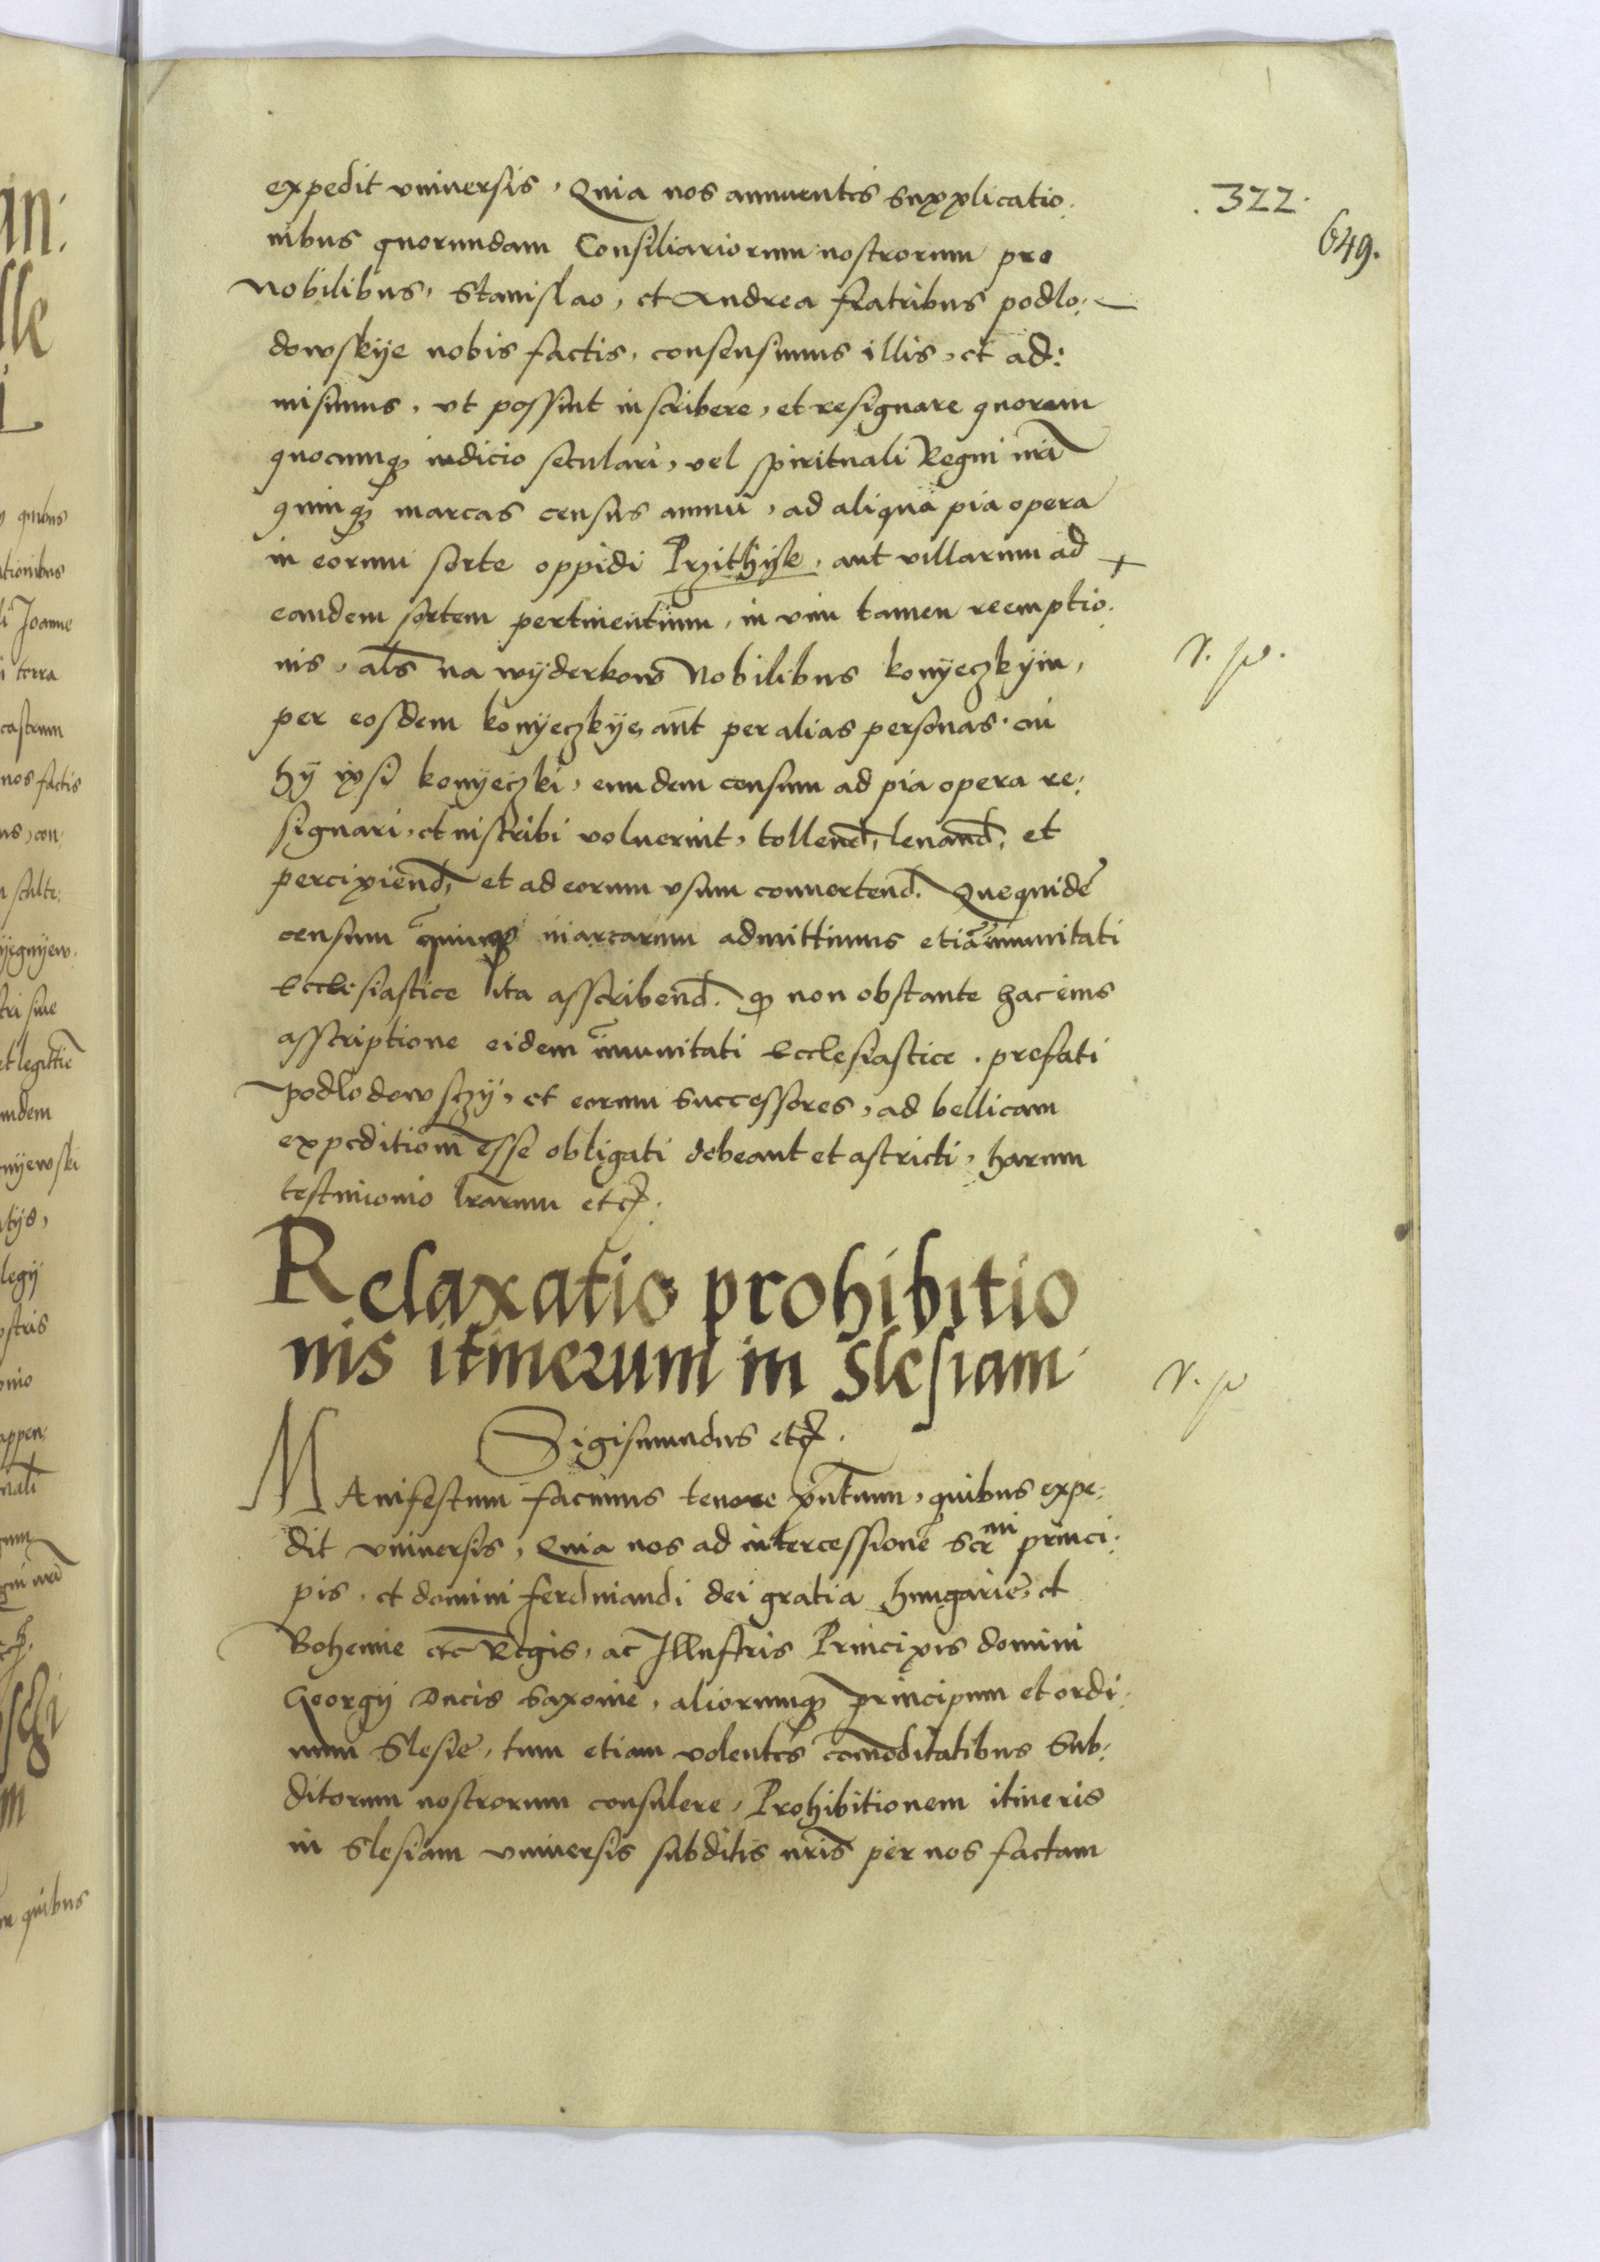 .322.
649.
expedit vniuersis, Quia nos annuentes supplicatio:
nibus quorundam Consiliariorum nostrorum pro
Nobilibus, Stanislao, et Andrea fratribus podlo:
dowskije nobis factis, consensimus illis, et ad:
misimus, vt possint inscribere, et resignare quorum
quocunq iudicio seculari, vel spirituali Regni nri
quinq marcas census annui, ad aliqua pia opera
in eorum sorte oppidi Przithijk, aut villarum ad +
eandem sortem pertinentium, in vim tamen reemptio:
nis, als na wyderkow Nobilibus konyeczkym,
per eosdem konyeczkye, aut per alias personas, cui
hij ipsi konyeczki, eundem censum ad pia opera re:
signari, et inscribi voluerint, tollend, leuand, et
percipiend, et ad eorum vsum conuertend. Quequidē
censum quinq marcarum admittimus etiā imunitati
Ecclesiastice ita asscribend. q non obstante hac eius
asscriptione eidem imunitati Ecclesiastice. prefati
podlodowsczij, et eorum successores, ad bellicam
expeditionē esse obligati debeant et astricti, harum
testimonio lrarum etc.
Relaxatio prohibitio
nis itinerum in Slesiam
Sigismundus etc.
MAnifestum facimus tenore pntium, quibus expe:
dit vniuersis, Quia nos ad intercessionē Ser mi princi:
pis, et domini ferdinandi dei gratia hungarie, et
Bohemie etc Regis, ac Illustris Principis domini
Georgij Ducis Saxonie, aliorumq principum et ordi:
num Slesie, tum etiam volentes comoditatibus Sub:
ditorum nostrorum consulere, Prohibitionem itineris
in Slesiam vniuersis subditis nris per nos factam